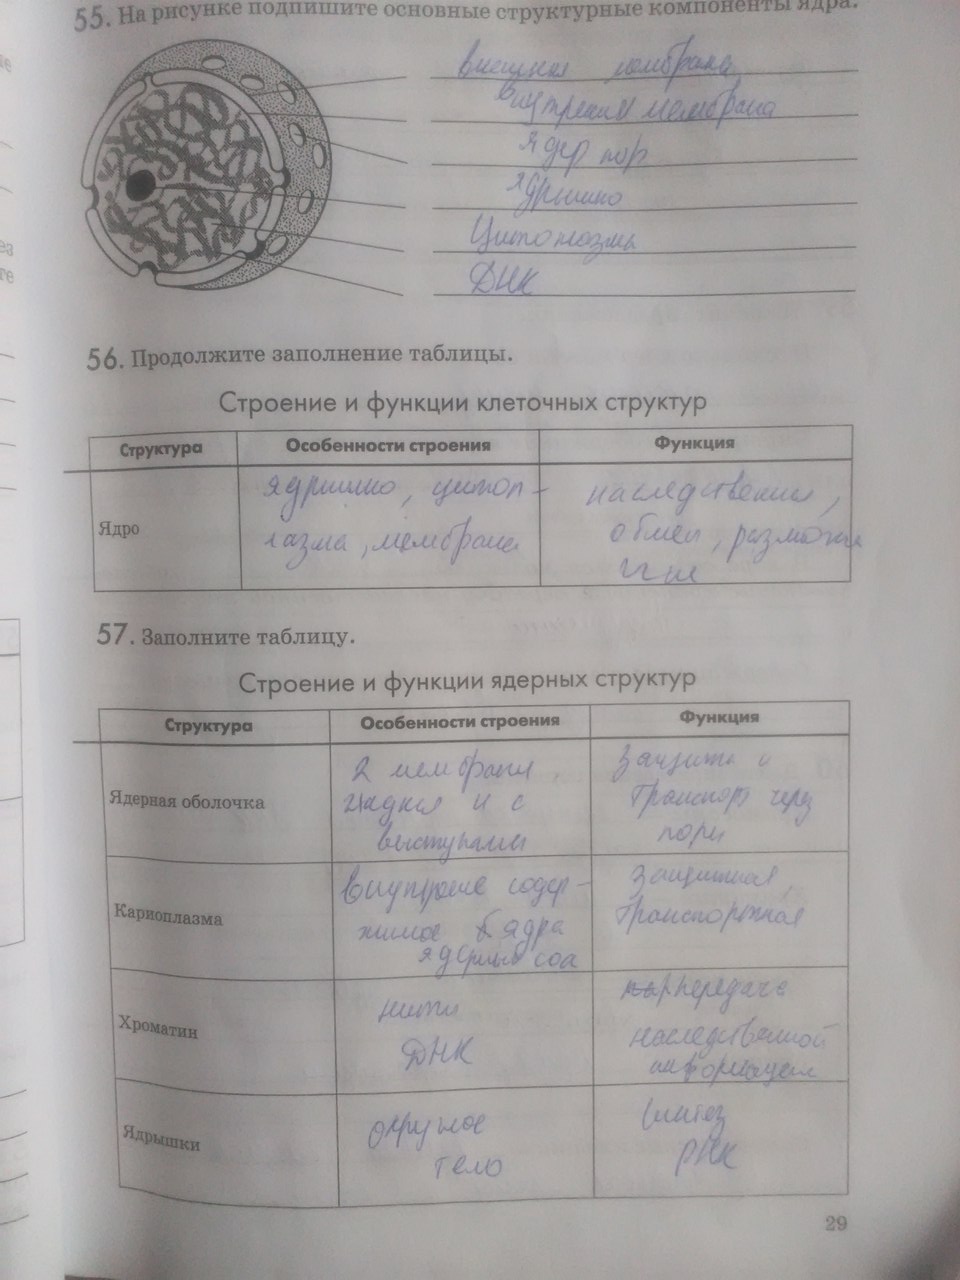 55. На рисунке подпишите основные структурные компоненты ядра.
внешняя мембрана
внутрення мембрана
ядер пор
ядрышко
Цитоплазма
ДНК
56. Продолжите заполнение таблицы.
Строение и функции клеточных структур
Структура Особенности строения Функция
Ядро
ядрышко, цитоп-
лазма, мембрана
наследственная,
обмен, размноже
ние
57. Заполните таблицу.
Строение и функции ядерных структур
Структура Особенности строения Функция
Ядерная оболочка
2 мембраны
гладкая и с
выступами
Защита и
Транспорт через
поры
Кариоплазма
внутренне содер-
жимое ядра
ядерный сок
Защитная,
Транспортная
Хроматин
нити
ДНК
передача
наследственной
информации
Ядрышки
округлое
тело
Синтез
РНК
29